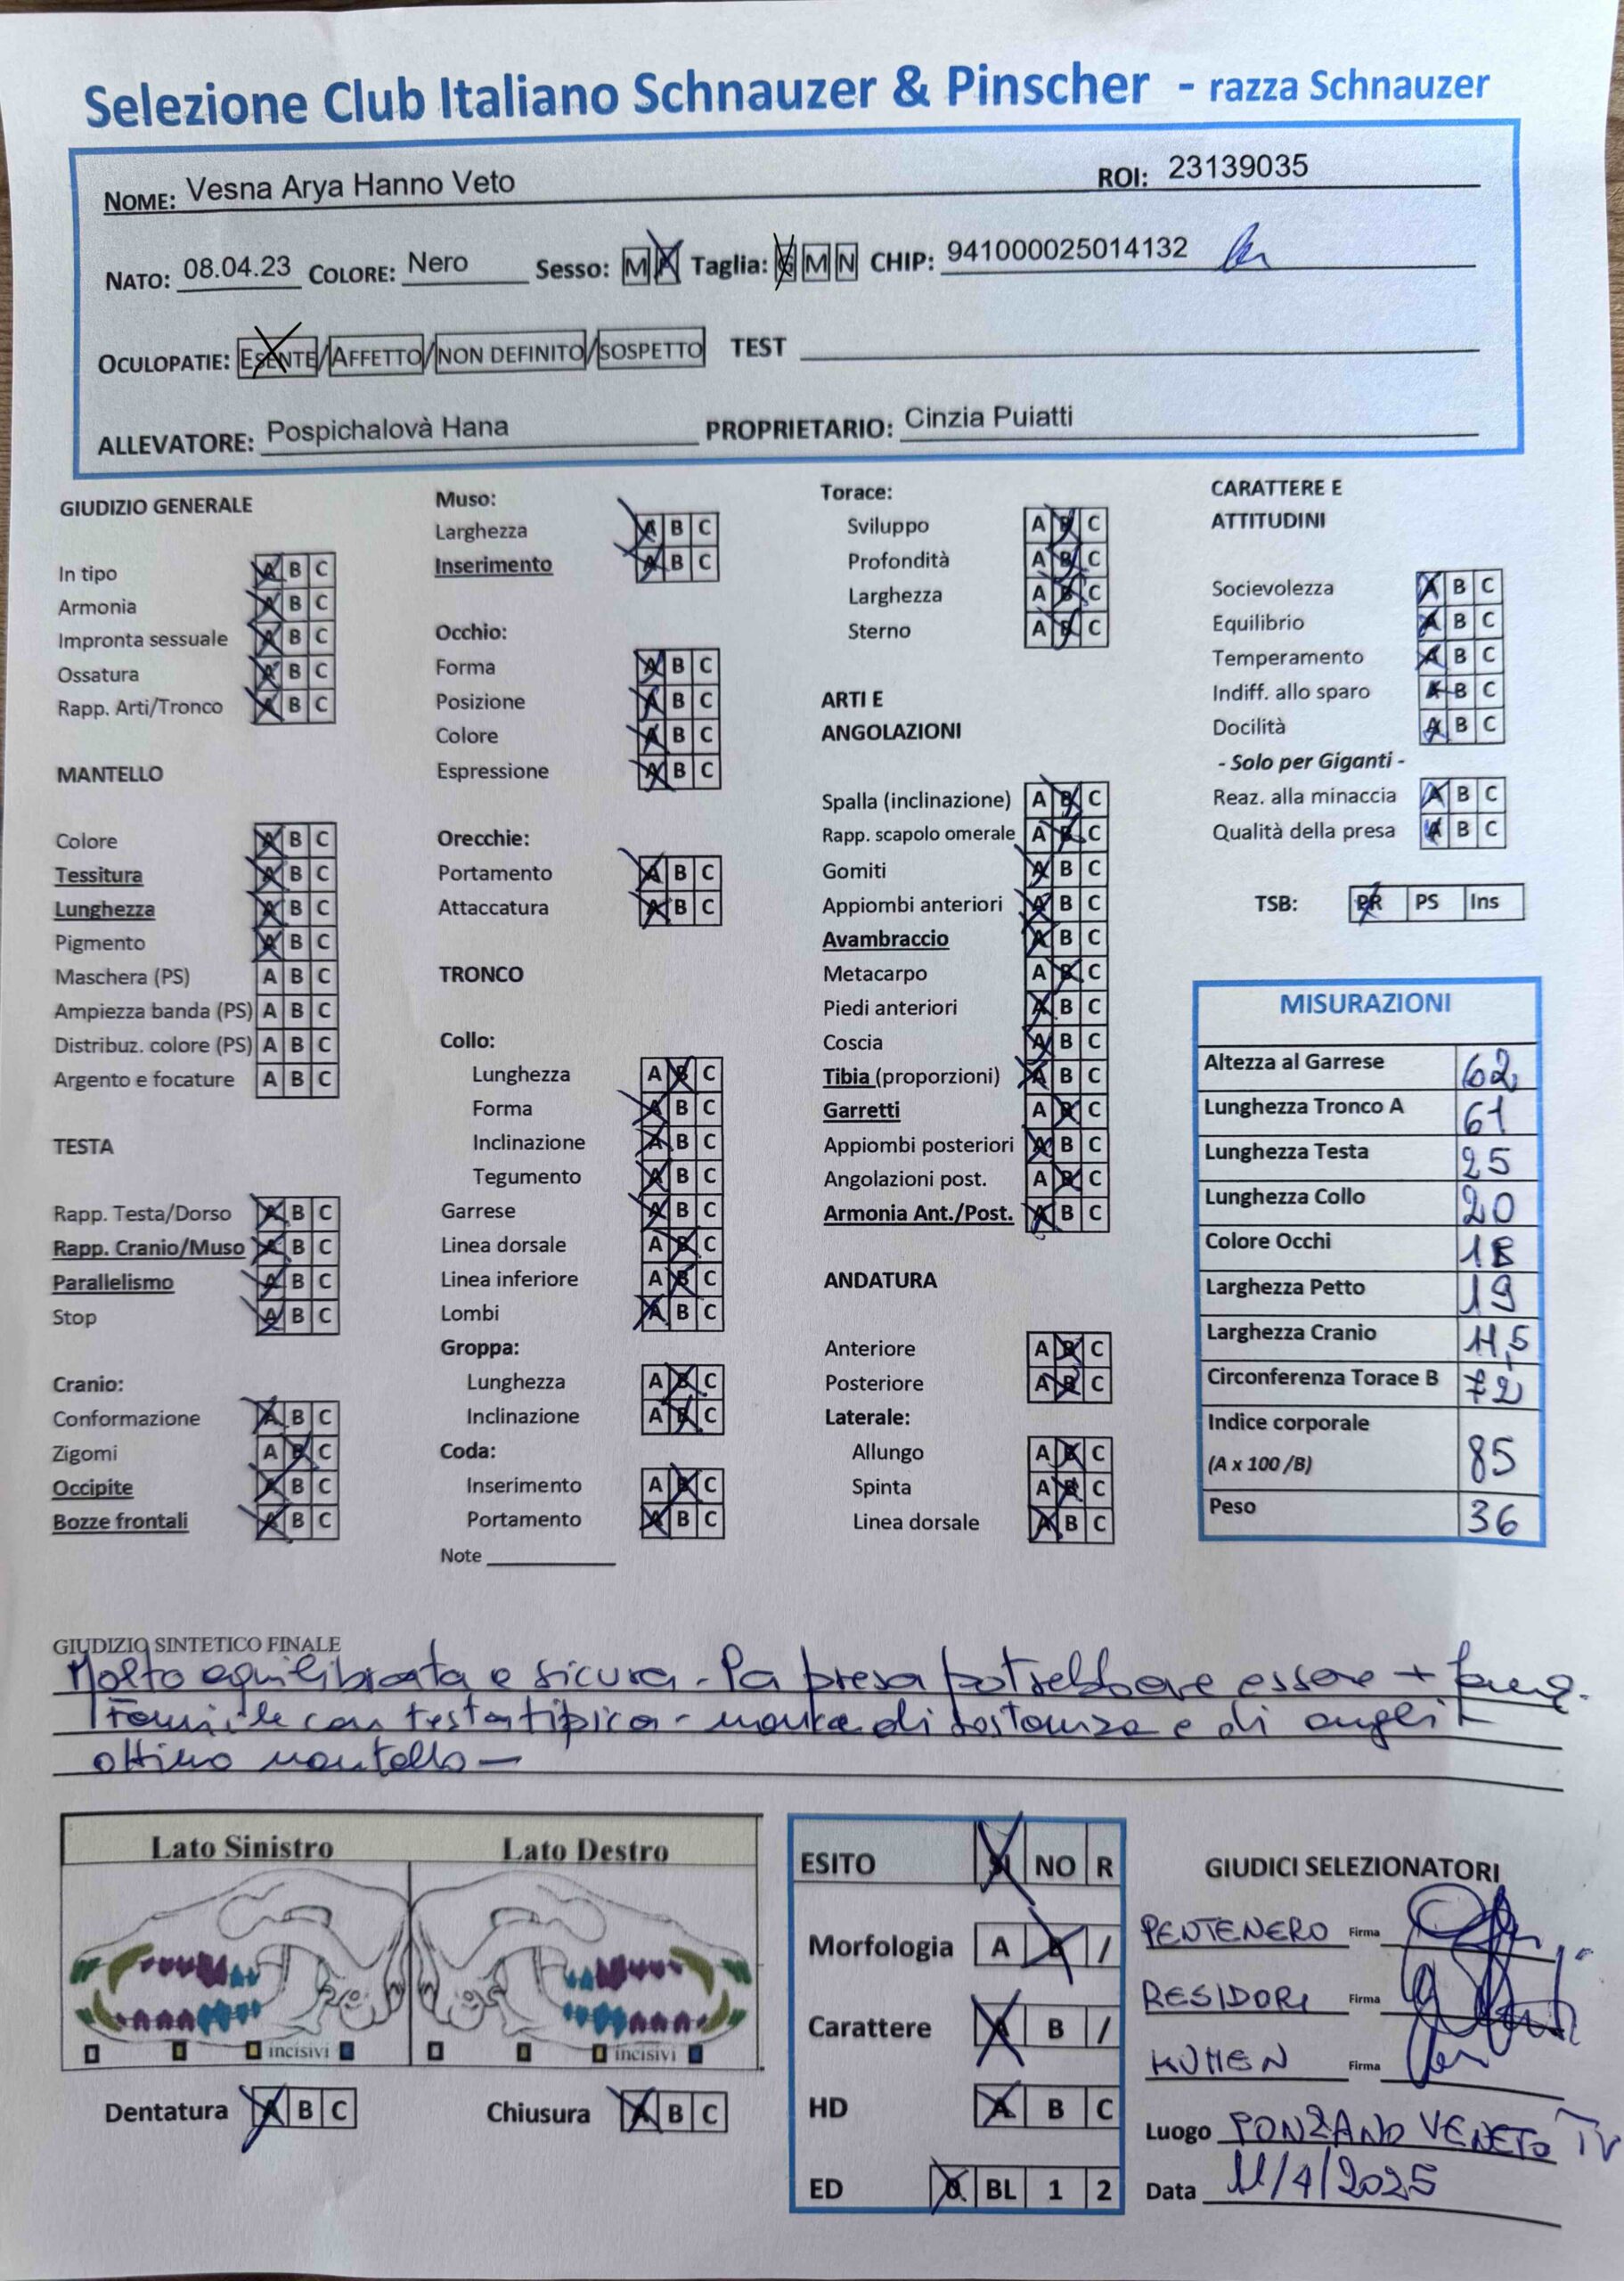 Selezione Club Italiano Schnauzer & Pinscher - razza Schnauzer
NOME: Vesna Arya Hanno Veto ROI: 23139035
NATO: 08.04.23 COLORE: Nero Sesso: M F Taglia: G M N CHIP: 941000025014132
OCULOPATIE: ESENTE/AFFETTO/NON DEFINITO/SOSPETTO TEST
ALLEVATORE: Pospichalovà Hana PROPRIETARIO: Cinzia Puiatti
GIUDIZIO GENERALE
In tipo A B C
Armonia A B C
Impronta sessuale A B C
Ossatura A B C
Rapp. Arti/Tronco A B C
MANTELLO
Colore A B C
Tessitura A B C
Lunghezza A B C
Pigmento A B C
Maschera (PS) A B C
Ampiezza banda (PS) A B C
Distribuz. colore (PS) A B C
Argento e focature A B C
TESTA
Rapp. Testa/Dorso A B C
Rapp. Cranio/Muso A B C
Parallelismo A B C
Stop A B C
Cranio:
Conformazione A B C
Zigomi A B C
Occipite A B C
Bozze frontali A B C
Muso:
Larghezza A B C
Inserimento A B C
Occhio:
Forma A B C
Posizione A B C
Colore A B C
Espressione A B C
Orecchie:
Portamento A B C
Attaccatura A B C
TRONCO
Collo:
Lunghezza A B C
Forma A B C
Inclinazione A B C
Tegumento A B C
Garrese A B C
Linea dorsale A B C
Linea inferiore A B C
Lombi A B C
Groppa:
Lunghezza A B C
Inclinazione A B C
Coda:
Inserimento A B C
Portamento A B C
Note
Torace:
Sviluppo A B C
Profondità A B C
Larghezza A B C
Sterno A B C
ARTI E
ANGOLAZIONI
Spalla (inclinazione) A B C
Rapp. scapolo omerale A B C
Gomiti A B C
Appiombi anteriori A B C
Avambraccio A B C
Metacarpo A B C
Piedi anteriori A B C
Coscia A B C
Tibia (proporzioni) A B C
Garretti A B C
Appiombi posteriori A B C
Angolazioni post. A B C
Armonia Ant./Post. A B C
ANDATURA
Anteriore A B C
Posteriore A B C
Laterale:
Allungo A B C
Spinta A B C
Linea dorsale A B C
CARATTERE E
ATTITUDINI
Socievolezza A B C
Equilibrio A B C
Temperamento A B C
Indiff. allo sparo A B C
Docilità A B C
- Solo per Giganti -
Reaz. alla minaccia A B C
Qualità della presa A B C
TSB: PR PS Ins
MISURAZIONI
Altezza al Garrese 62
Lunghezza Tronco A 61
Lunghezza Testa 25
Lunghezza Collo 20
Colore Occhi 1B
Larghezza Petto 19
Larghezza Cranio 11,5
Circonferenza Torace B 72
Indice corporale
(A x 100 /B) 85
Peso 36
GIUDIZIO SINTETICO FINALE
Molto equilibrata e sicura - la presa potrebbe essere +
Femmina con testa tipica - manca di sostanza e di angoli
ottimo mantello -
Lato Sinistro Lato Destro
incisivi incisivi
Dentatura A B C Chiusura A B C
ESITO SI NO R
Morfologia A B /
Carattere A B /
HD A B C
ED 0 BL 1 2
GIUDICI SELEZIONATORI
PENTENERO Firma
RESIDORI Firma
KUMEN Firma
Luogo PONZANO VENETO TV
Data 11/4/2025